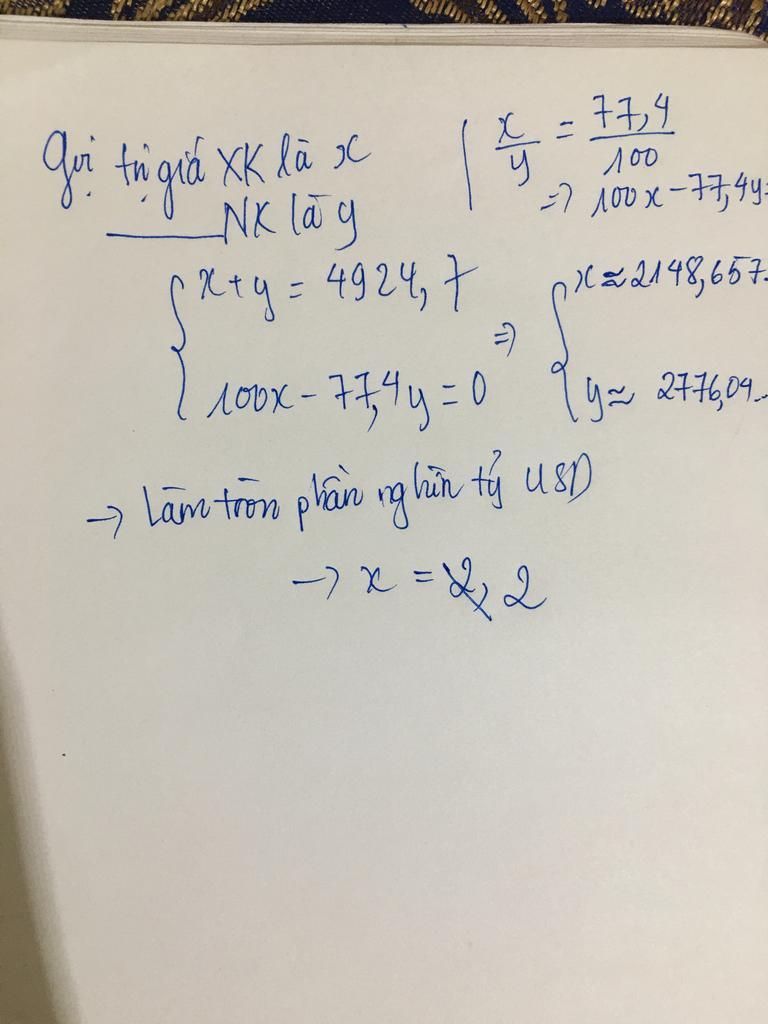 Gọi trị giá XK là x
NK là y
| x/y = 77,4/100
=> 100x - 77,4y=
{ x+y = 4924,7
100x - 77,4y = 0
=> { x ≈ 2148,657..
y ≈ 2776,04..
→ Làm tròn phần nghìn tỷ USD
→ x = 2, 2